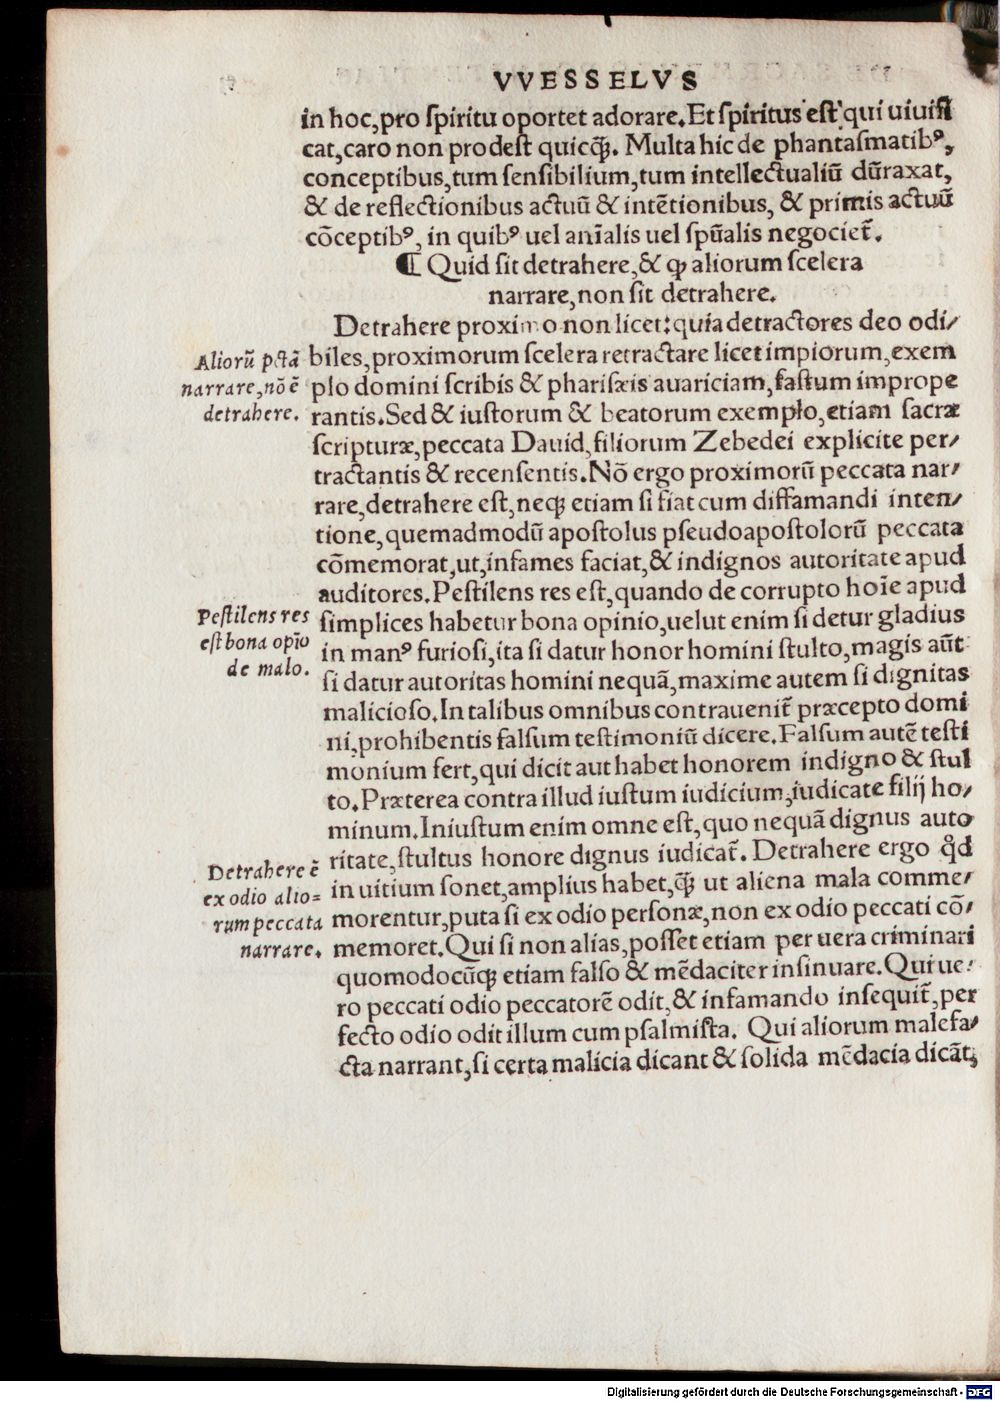 VVESSELVS
in hoc,pro ſpiritu oportet adorare.Et ſpiritus eſt qui uiuifi
cat,caro non prodeſt quicꝗ̃. Multa hic de phantaſmatibꝰ,
conceptibus,tum ſenſibilium,tum intellectualiũ dũtaxat,
& de reflectionibus actuũ & intẽtionibus, & primis actuũ
cõceptibꝰ, in quibꝰ uel aĩalis uel ſpũalis negociet̃.
¶ Quid ſit detrahere,& ꝙ aliorum ſcelera
narrare,non ſit detrahere.
Detrahere proximo non licet:quia detractores deo odi/
Aliorũ pctã
narrare,nõ ẽ
detrahere.
biles,proximorum ſcelera retractare licet impiorum,exem
plo domini ſcribis & phariſæis auariciam,faſtum imprope
rantis.Sed & iuſtorum & beatorum exemplo,etiam ſacræ
ſcripturæ,peccata Dauid,filiorum Zebedei explicite per/
tractantis & recenſentis.Nõ ergo proximorũ peccata nar/
rare,detrahere eſt,neqꝫ etiam ſi fiat cum diffamandi inten/
tione,quemadmodũ apoſtolus pſeudoapoſtolorũ peccata
cõmemorat,ut,infames faciat,& indignos autoritate apud
auditores.Peſtilens res eſt,quando de corrupto hoĩe apud
Peſtilens res
eſt bona opĩo
de malo.
ſimplices habetur bona opinio,uelut enim ſi detur gladius
in manꝰ furioſi,ita ſi datur honor homini ſtulto,magis aũt
ſi datur autoritas homini nequã,maxime autem ſi dignitas
malicioſo.In talibus omnibus contrauenit̃ præcepto domi
ni,prohibentis falſum teſtimoniũ dicere.Falſum autẽ teſti
monium fert,qui dicit aut habet honorem indigno & ſtul
to.Præterea contra illud iuſtum iudicium,iudicate filij ho/
minum.Iniuſtum enim omne eſt,quo nequã dignus auto
ritate,ſtultus honore dignus iudicat̃.Detrahere ergo qd̓
Detrahere ẽ
ex odio alio=
rum peccata
narrare.
in uitium ſonet,amplius habet,ꝗ̃ ut aliena mala comme/
morentur,puta ſi ex odio perſonæ,non ex odio peccati cõ/
memoret.Qui ſi non alias,poſſet etiam per uera criminari
quomodocũqꝫ etiam falſo & mẽdaciter inſinuare.Qui ue/
ro peccati odio peccatorẽ odit,& infamando inſequit̃,per
fecto odio odit illum cum pſalmiſta. Qui aliorum malefa/
cta narrant,ſi certa malicia dicant & ſolida mẽdacia dicãt,
Digitalisierung gefördert durch die Deutsche Forschungsgemeinschaft - DFG